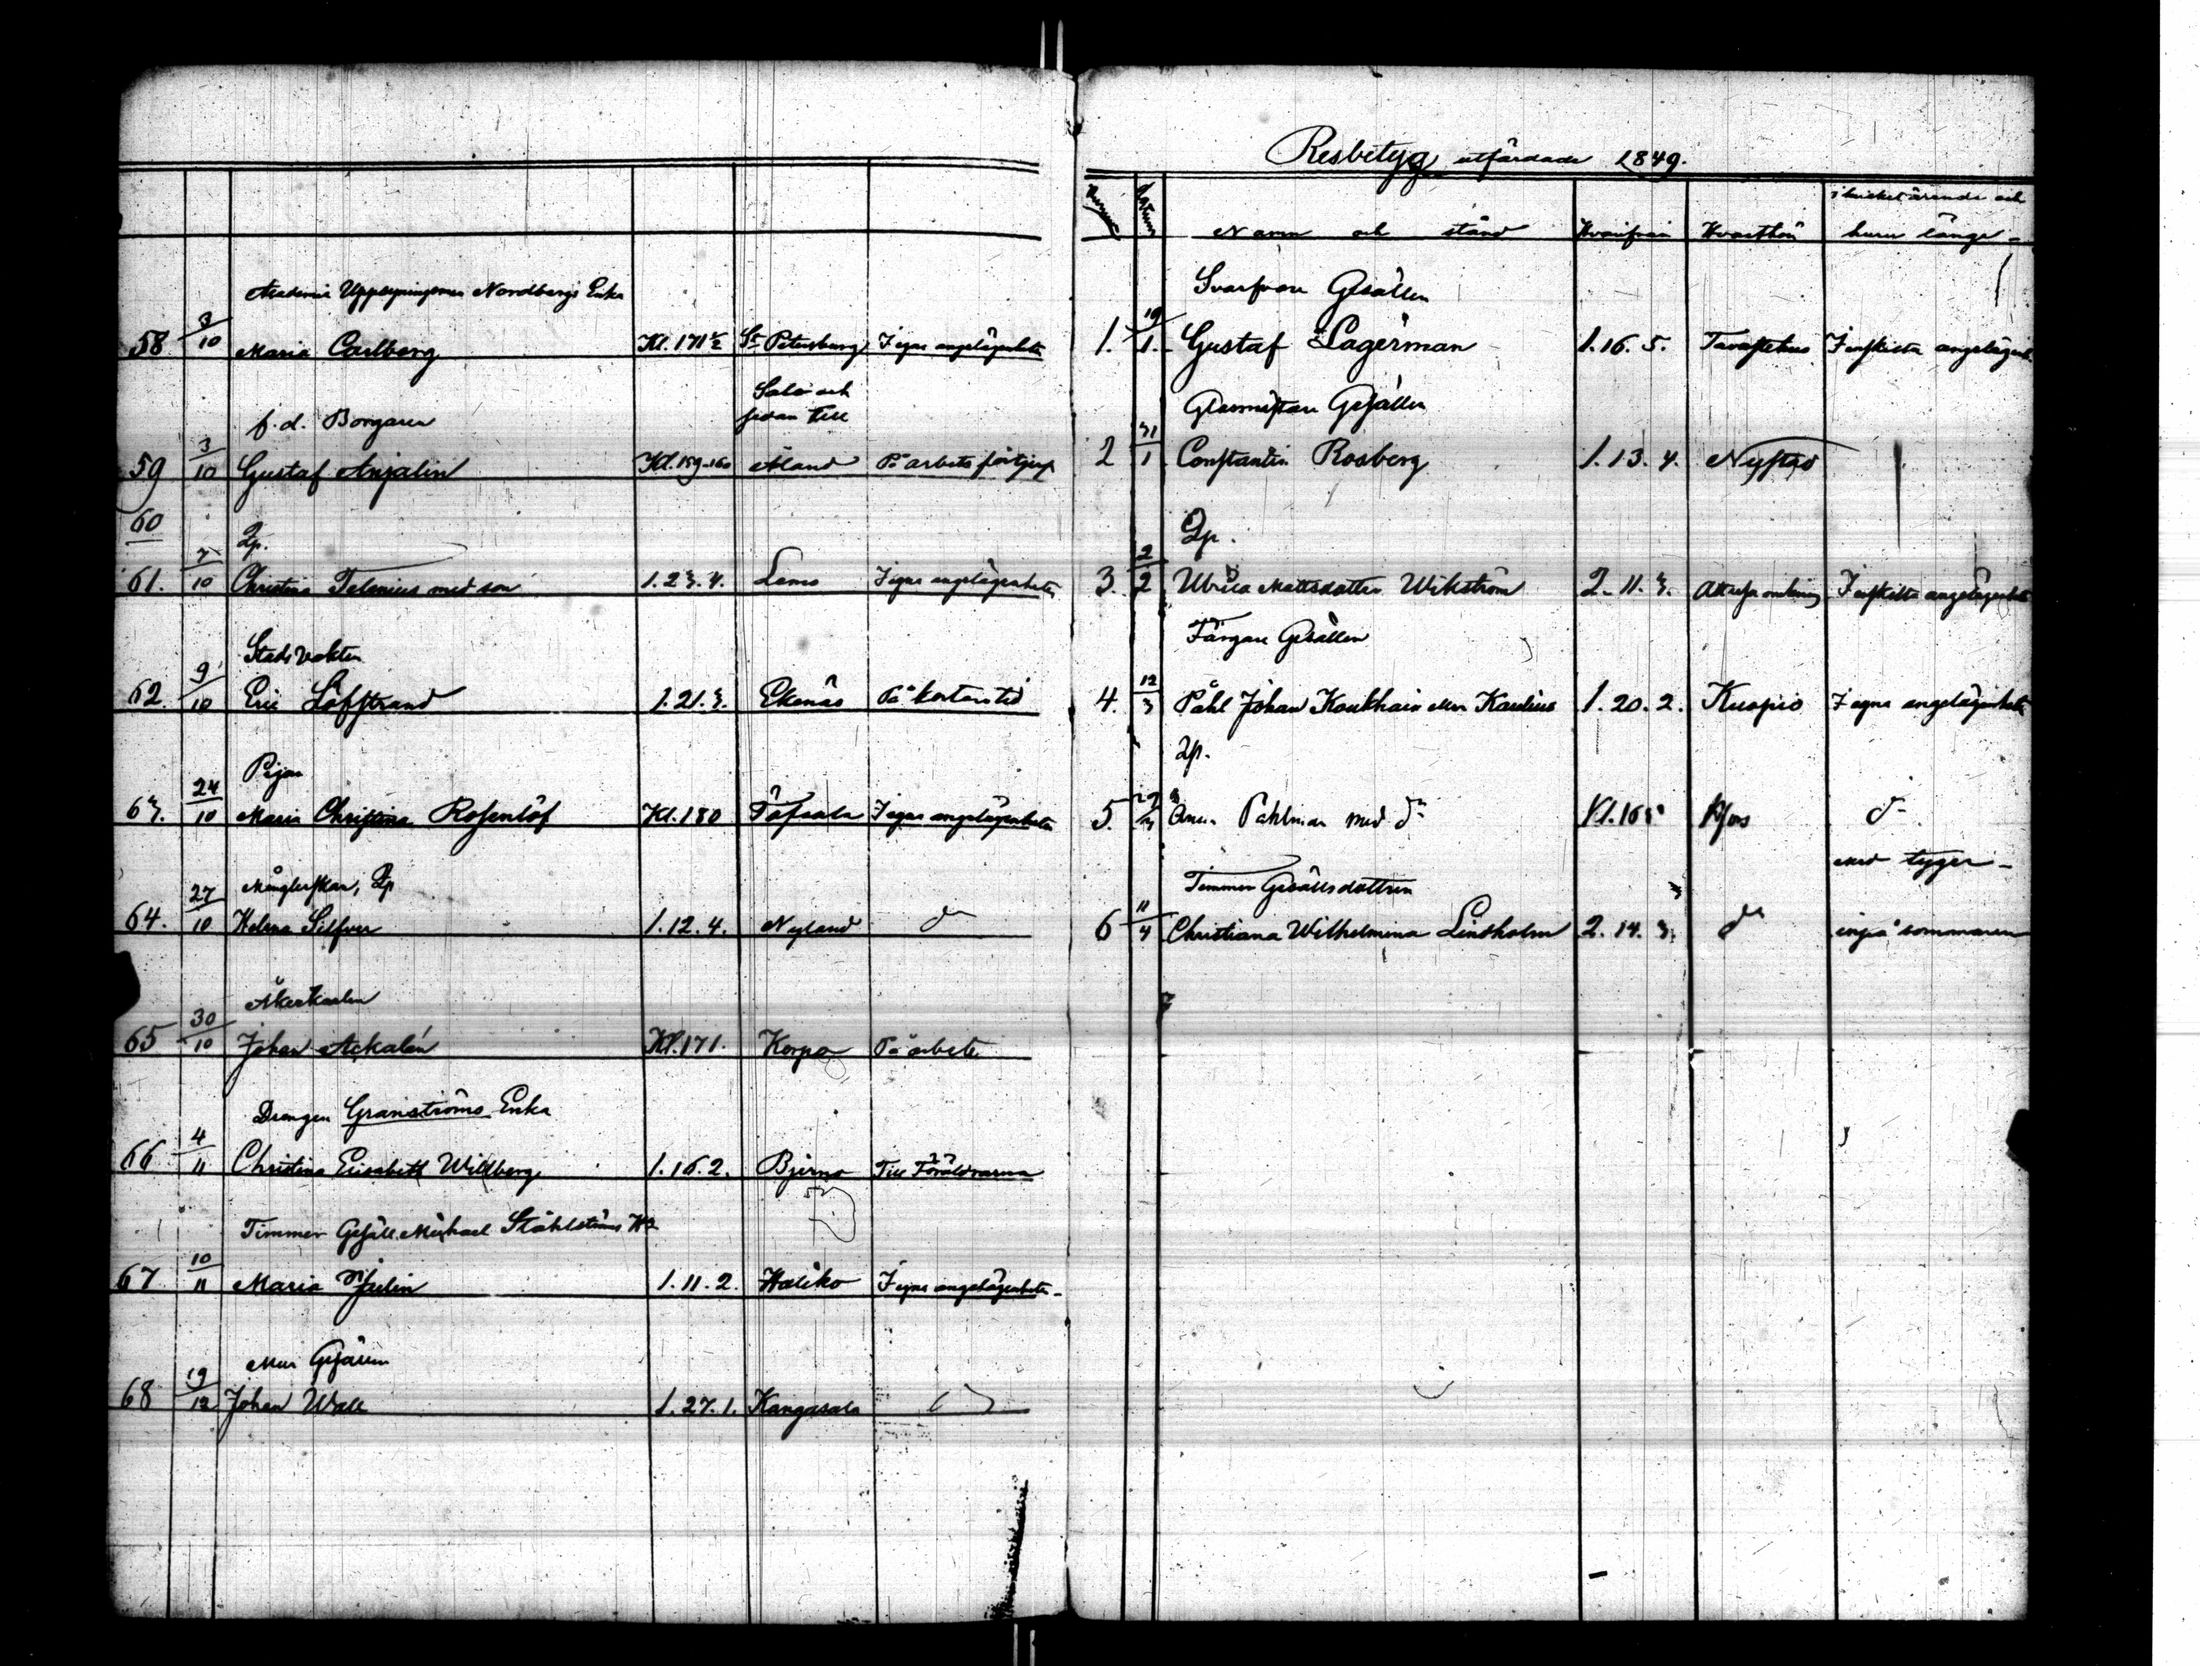 Academie Nordbergs Enka
58 3/10 Maria Carlberg Kl. 171½ St Petersburg I egna angelägenheter
Salo och
f. d. Borgaren sedan till
59 3/10 Gustaf Anjalin Kl. 159-160 Åland På arbets förtjenst
60
Qp.
61. 7/10 Christina Telenius med son 1. 23. 4. Lemo I egna angelägenheter
Stads Vakten
62. 9/10 Eric Löfstrand 1. 21. 3. Ekenäs På kortare tid
Pigan
63. 24/10 Maria Christina Rosenlöf Kl. 180 Töfsala I egna angelägenheter
Månglerskan, Qp
64. 27/10 Helena Silfver 1. 12. 4. Nyland do
Åkerkarlen
65 30/10 Johan Ackalén Kl. 171. Korpo På arbete
Drengen Granströms Enka
66 4/11 Christina Elisabeth Willberg 1. 16. 2. Bjerno Till Föräldrarna
Timmer Gesäll. Michael Ståhlströms
67 10/11 Maria Julin 1. 11. 2. Haliko I egna angelägenheter
Mur Gesällen
68 19/12 Johan Wall 1. 27. 1. Kangasala
Resbetyg utfärdade 1849.
i hvilket ärende och
Numer Datum Namn och stånd Hvarifrån Hvarthän huru länge
Svarfvare Gesällen
1. 19/1 Gustaf Lagerman 1. 16. 5. Tavastehus I enskilta angelägenh.
Glasmästare Gesällen
2 31/1 Constantin Rosberg 1. 13. 4. Nystad
Qp.
3. 2/2 Ulrica Mattsdotter Wikström 2. 11. 3. I enskilta angelägenheter
Färgare Gesällen
4. 12/3 Påhl Johan Koukkain eller Kaulius 1. 20. 2. Kuopio I egna angelägenheter
Qp.
5. 29/3 Anna Pahlman med dr Kl. 165 Hfors do
med tyger
Timmer Gesällsdottren
6 11/4 Christiana Wilhelmina Lindholm 2. 14. 3. do inpå sommaren
7